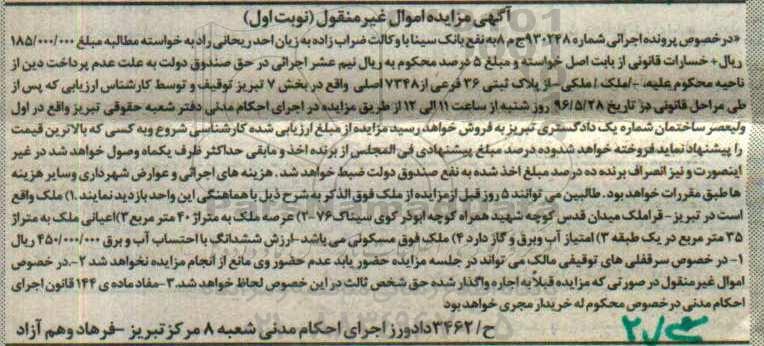 آگهی مزایده اموال غیر منقول (نوبت اول)
«درخصوص پرونده اجرائی شماره ۹۳۰۲۴۸ج م ۸ به نفع بانک سینا با وکالت ضراب زاده به زیان احد ریحانی راد به خواسته مطالبه مبلغ ۱۸۵/۰۰۰/۰۰۰
ریال + خسارات قانونی از بابت اصل خواسته و مبلغ ۵ درصد محکوم به ریال نیم عشر اجرائی در حق صندوق دولت به علت عدم پرداخت دین از
ناحیه محکوم علیه، -/ملک / ملکی -/ پلاک ثبتی ۳۶ فرعی از ۷۳۴۸ اصلی واقع در بخش ۷ تبریز توقیف و توسط کارشناس ارزیابی که پس از
طی مراحل قانونی در تاریخ ۹۶/۵/۲۸ روز شنبه از ساعت ۱۱ الی ۱۲ از طریق مزایده در اجرای احکام مدنی دفتر شعبه حقوقی تبریز واقع در اول
ولیعصر ساختمان شماره یک دادگستری تبریز به فروش خواهد رسید مزایده از مبلغ ارزیابی شده کارشناسی شروع وبه کسی که بالاترین قیمت
را پیشنهاد نماید فروخته خواهد شد و ده درصد مبلغ پیشنهادی فی المجلس از برنده اخذ و مابقی حداکثر ظرف یکماه وصول خواهد شد در غیر
اینصورت و نیز انصراف برنده ده درصد مبلغ اخذ شده به نفع صندوق دولت ضبط خواهد شد. هزینه های اجرائی و عوارض شهرداری وسایر هزینه
ها طبق مقررات خواهد بود. طالبین می توانند ۵ روز قبل از مزایده از ملک فوق الذکر به شرح ذیل با هماهنگی این واحد بازدید نمایند.۱) ملک واقع
است در تبریز- قراملک میدان قدس کوچه شهید همراه کوچه ابوذر کوی سیناک۷۶-۲) عرصه ملک به متراژ ۴۰ متر مربع ۳)اعیانی ملک به متراژ
۳۵ متر مربع در یک طبقه ۳) امتیاز آب وبرق و گاز دارد ۴) ملک فوق مسکونی می باشد-ارزش ششدانگ با احتساب آب و برق ۴۵۰/۰۰۰/۰۰۰ ریال
۱- در خصوص سرقفلی های توقیفی مالک می تواند در جلسه مزایده حضور یابد عدم حضور وی مانع از انجام مزایده نخواهد شد ۲-در خصوص
اموال غیر منقول در صورتی که مزایده قبلاً به اجاره واگذار شده حق شخص ثالث در این خصوص لحاظ خواهد شد.۳-مفاد ماده ی ۱۴۴ قانون اجرای
احکام مدنی در خصوص محکوم له خریدار مجری خواهد بود
ح/۳۴۶۲ دادورز اجرای احکام مدنی شعبه ۸ مرکز تبریز -فرهاد وهم آزاد